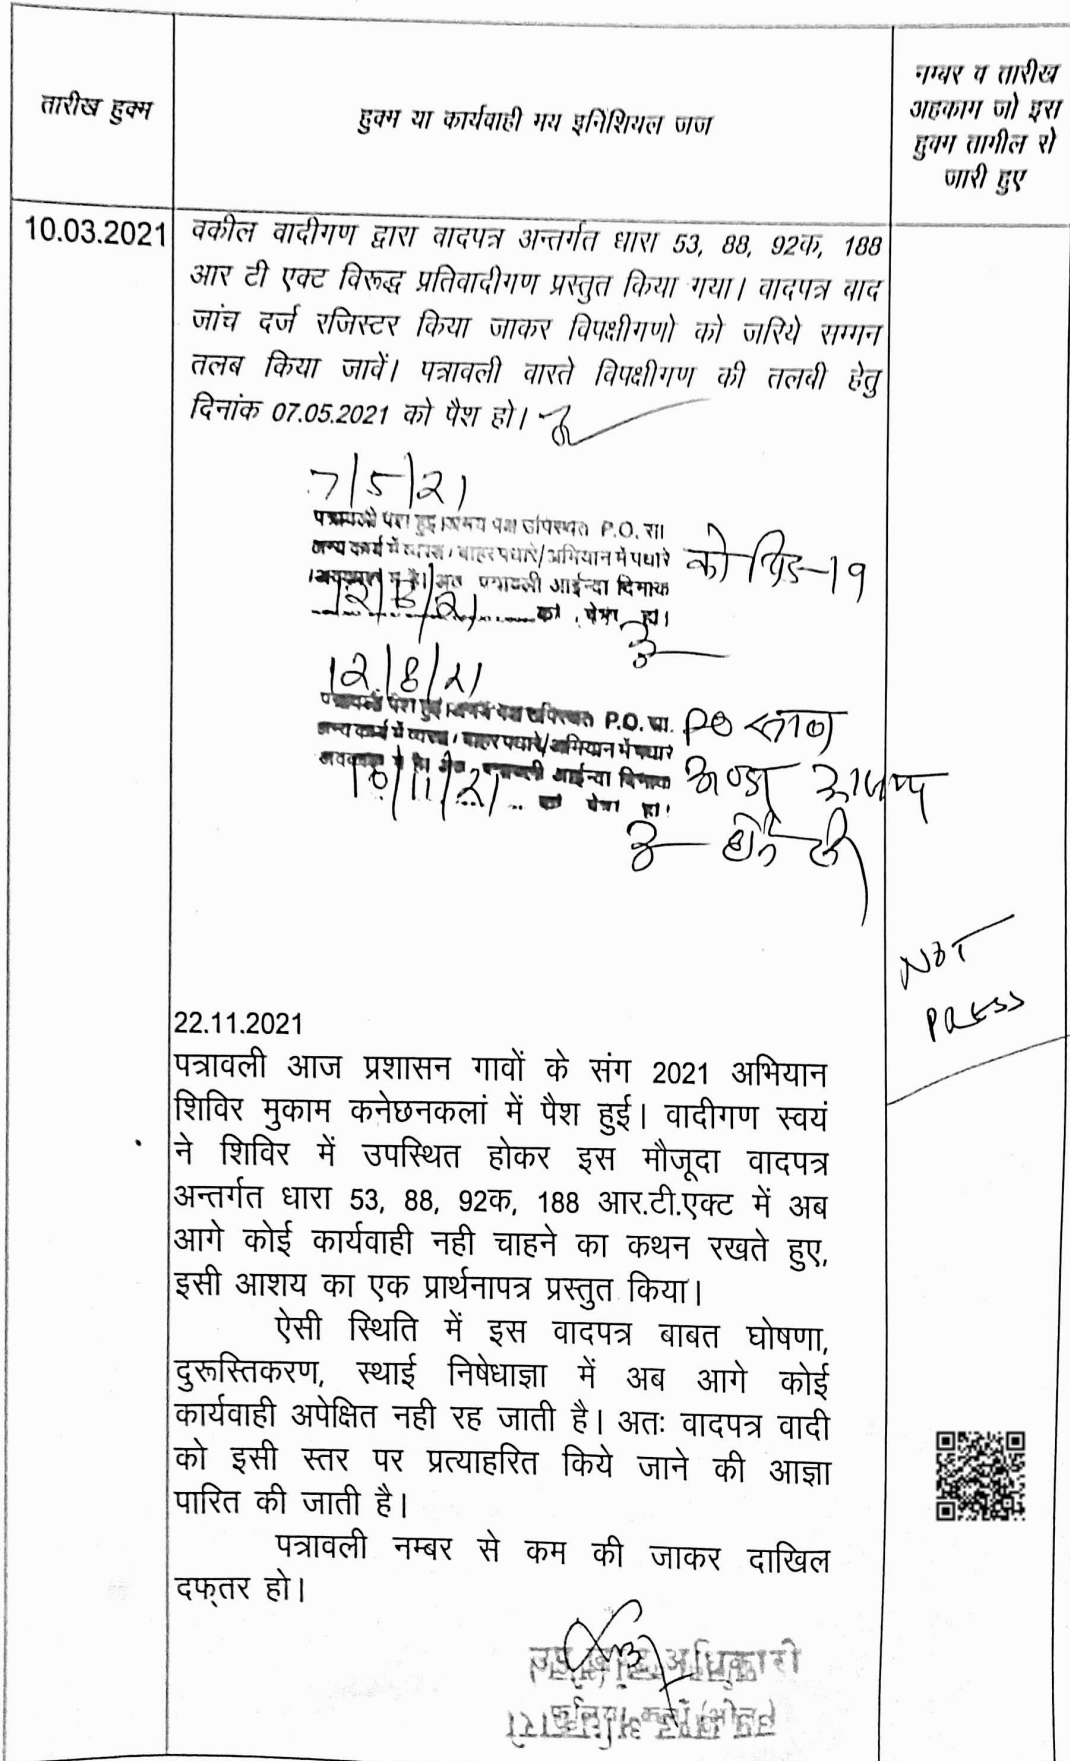 तारीख हुक्म
हुक्म या कार्यवाही मय इनिशियल जज
नम्बर व तारीख
अहकाम जो इस
हुक्म तामील से
जारी हुए
10.03.2021
वकील वादीगण द्वारा वादपत्र अन्तर्गत धारा 53, 88, 92क, 188
आर टी एक्ट विरूद्ध प्रतिवादीगण प्रस्तुत किया गया। वादपत्र बाद
जांच दर्ज रजिस्टर किया जाकर विपक्षीगणो को जरिये सम्मन
तलब किया जावें। पत्रावली वास्ते विपक्षीगण की तलबी हेतु
दिनांक 07.05.2021 को पैश हो।
7/5/21
पत्रावली पेश हुई। उभय पक्ष उपस्थित P.O. सा
अन्य कार्य में व्यस्त / बाहर पधारे/अभियान में पधारे
अवकाश में है। अतः पत्रावली आईन्दा दिनांक
12/8/21 को पेश हो।
कोविड-19
12/8/21
पत्रावली पेश हुई। उभय पक्ष उपस्थित P.O. सा.
अन्य कार्य में व्यस्त / बाहर पधारे/अभियान में पधारे
अवकाश में है। अतः पत्रावली आईन्दा दिनांक
10/11/21 को पेश हो।
NOT
PRESS
22.11.2021
पत्रावली आज प्रशासन गावों के संग 2021 अभियान
शिविर मुकाम कनेछनकलां में पैश हुई। वादीगण स्वयं
ने शिविर में उपस्थित होकर इस मौजूदा वादपत्र
अन्तर्गत धारा 53, 88, 92क, 188 आर.टी.एक्ट में अब
आगे कोई कार्यवाही नही चाहने का कथन रखते हुए,
इसी आशय का एक प्रार्थनापत्र प्रस्तुत किया।
ऐसी स्थिति में इस वादपत्र बाबत घोषणा,
दुरूस्तिकरण, स्थाई निषेधाज्ञा में अब आगे कोई
कार्यवाही अपेक्षित नही रह जाती है। अतः वादपत्र वादी
को इसी स्तर पर प्रत्याहरित किये जाने की आज्ञा
पारित की जाती है।
पत्रावली नम्बर से कम की जाकर दाखिल
दफ्तर हो।